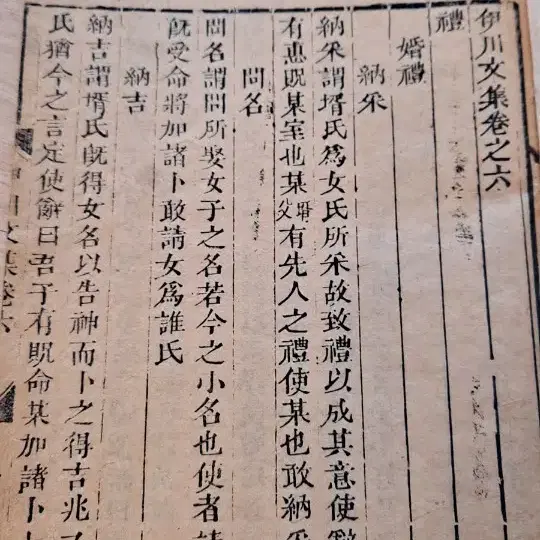 伊川文集卷之六
禮
婚禮
納采
納采謂壻氏爲女氏所采故致禮以成其意使
有惠貺某室也某壻父有先人之禮使某也敢納采
問名
問名謂問所娶女子之名若今之小名也使者請
旣受命將加諸卜敢請女爲誰氏
納吉
納吉謂壻氏旣得女名以告神而卜之得吉兆
氏猶今之言定使辭曰吾子有貺命某加諸卜
文集卷六